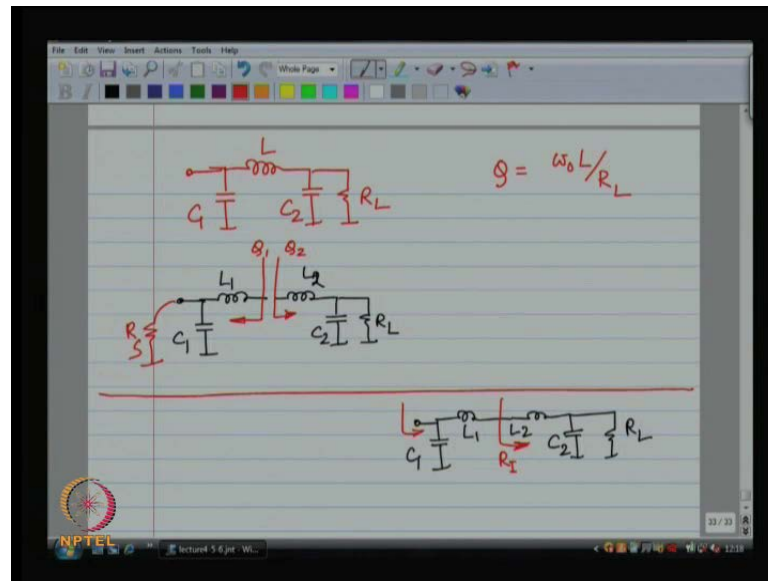 File Edit View Insert Actions Tools Help
Whole Page
B I
L
Q = ω₀L/R_L
C₁ C₂ R_L
Q₁ Q₂
L₁ L₂
R_S C₁ C₂ R_L
L₁ L₂ R_L
C₁ R_I C₂
33 / 33
NPTEL
lecture4-5-6.jnt - Wi...
12:18